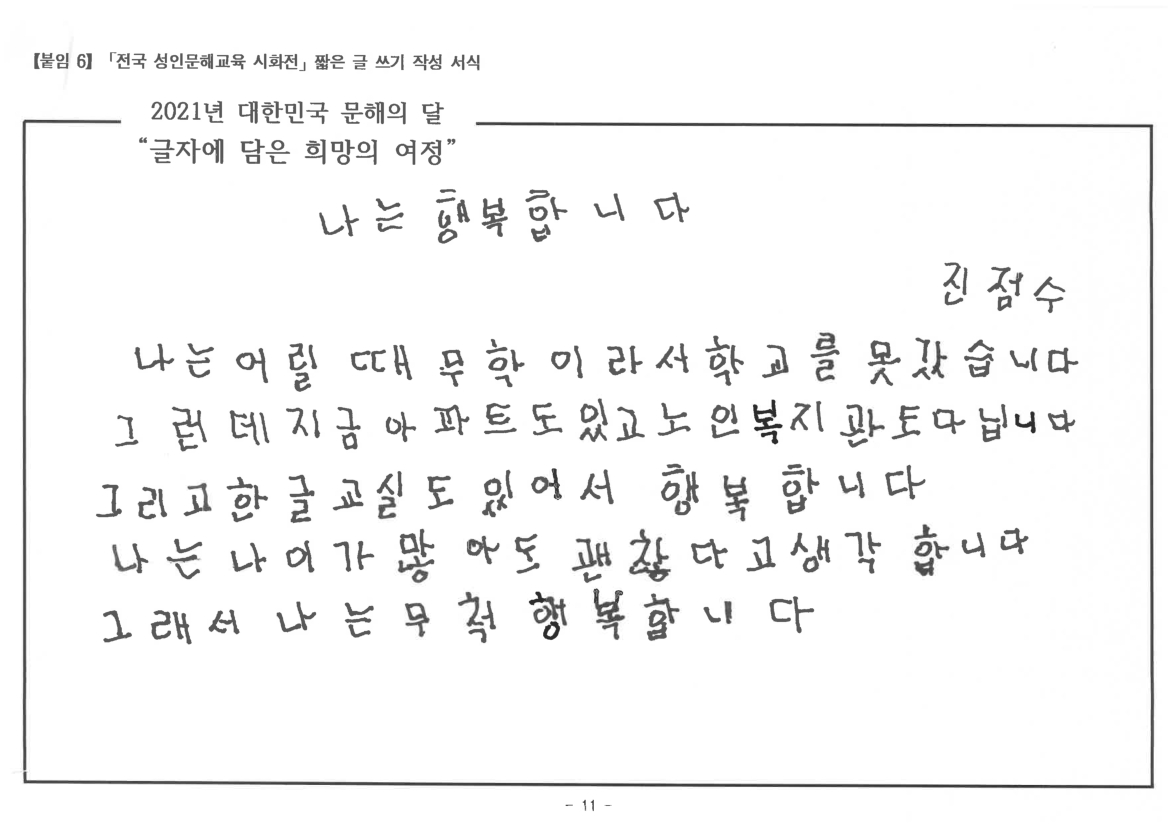 【붙임 6】 「전국 성인문해교육 시화전」 짧은 글 쓰기 작성 서식
2021년 대한민국 문해의 달
“글자에 담은 희망의 여정”
나는 행복합니다
진점수
나는 어릴 때 무학이라서 학교를 못갔습니다
그런데 지금 아파트도 있고 노인복지관도 다닙니다
그리고 한글교실도 있어서 행복합니다
나는 나이가 많아도 괜찮다고 생각합니다
그래서 나는 무척 행복합니다
- 11 -